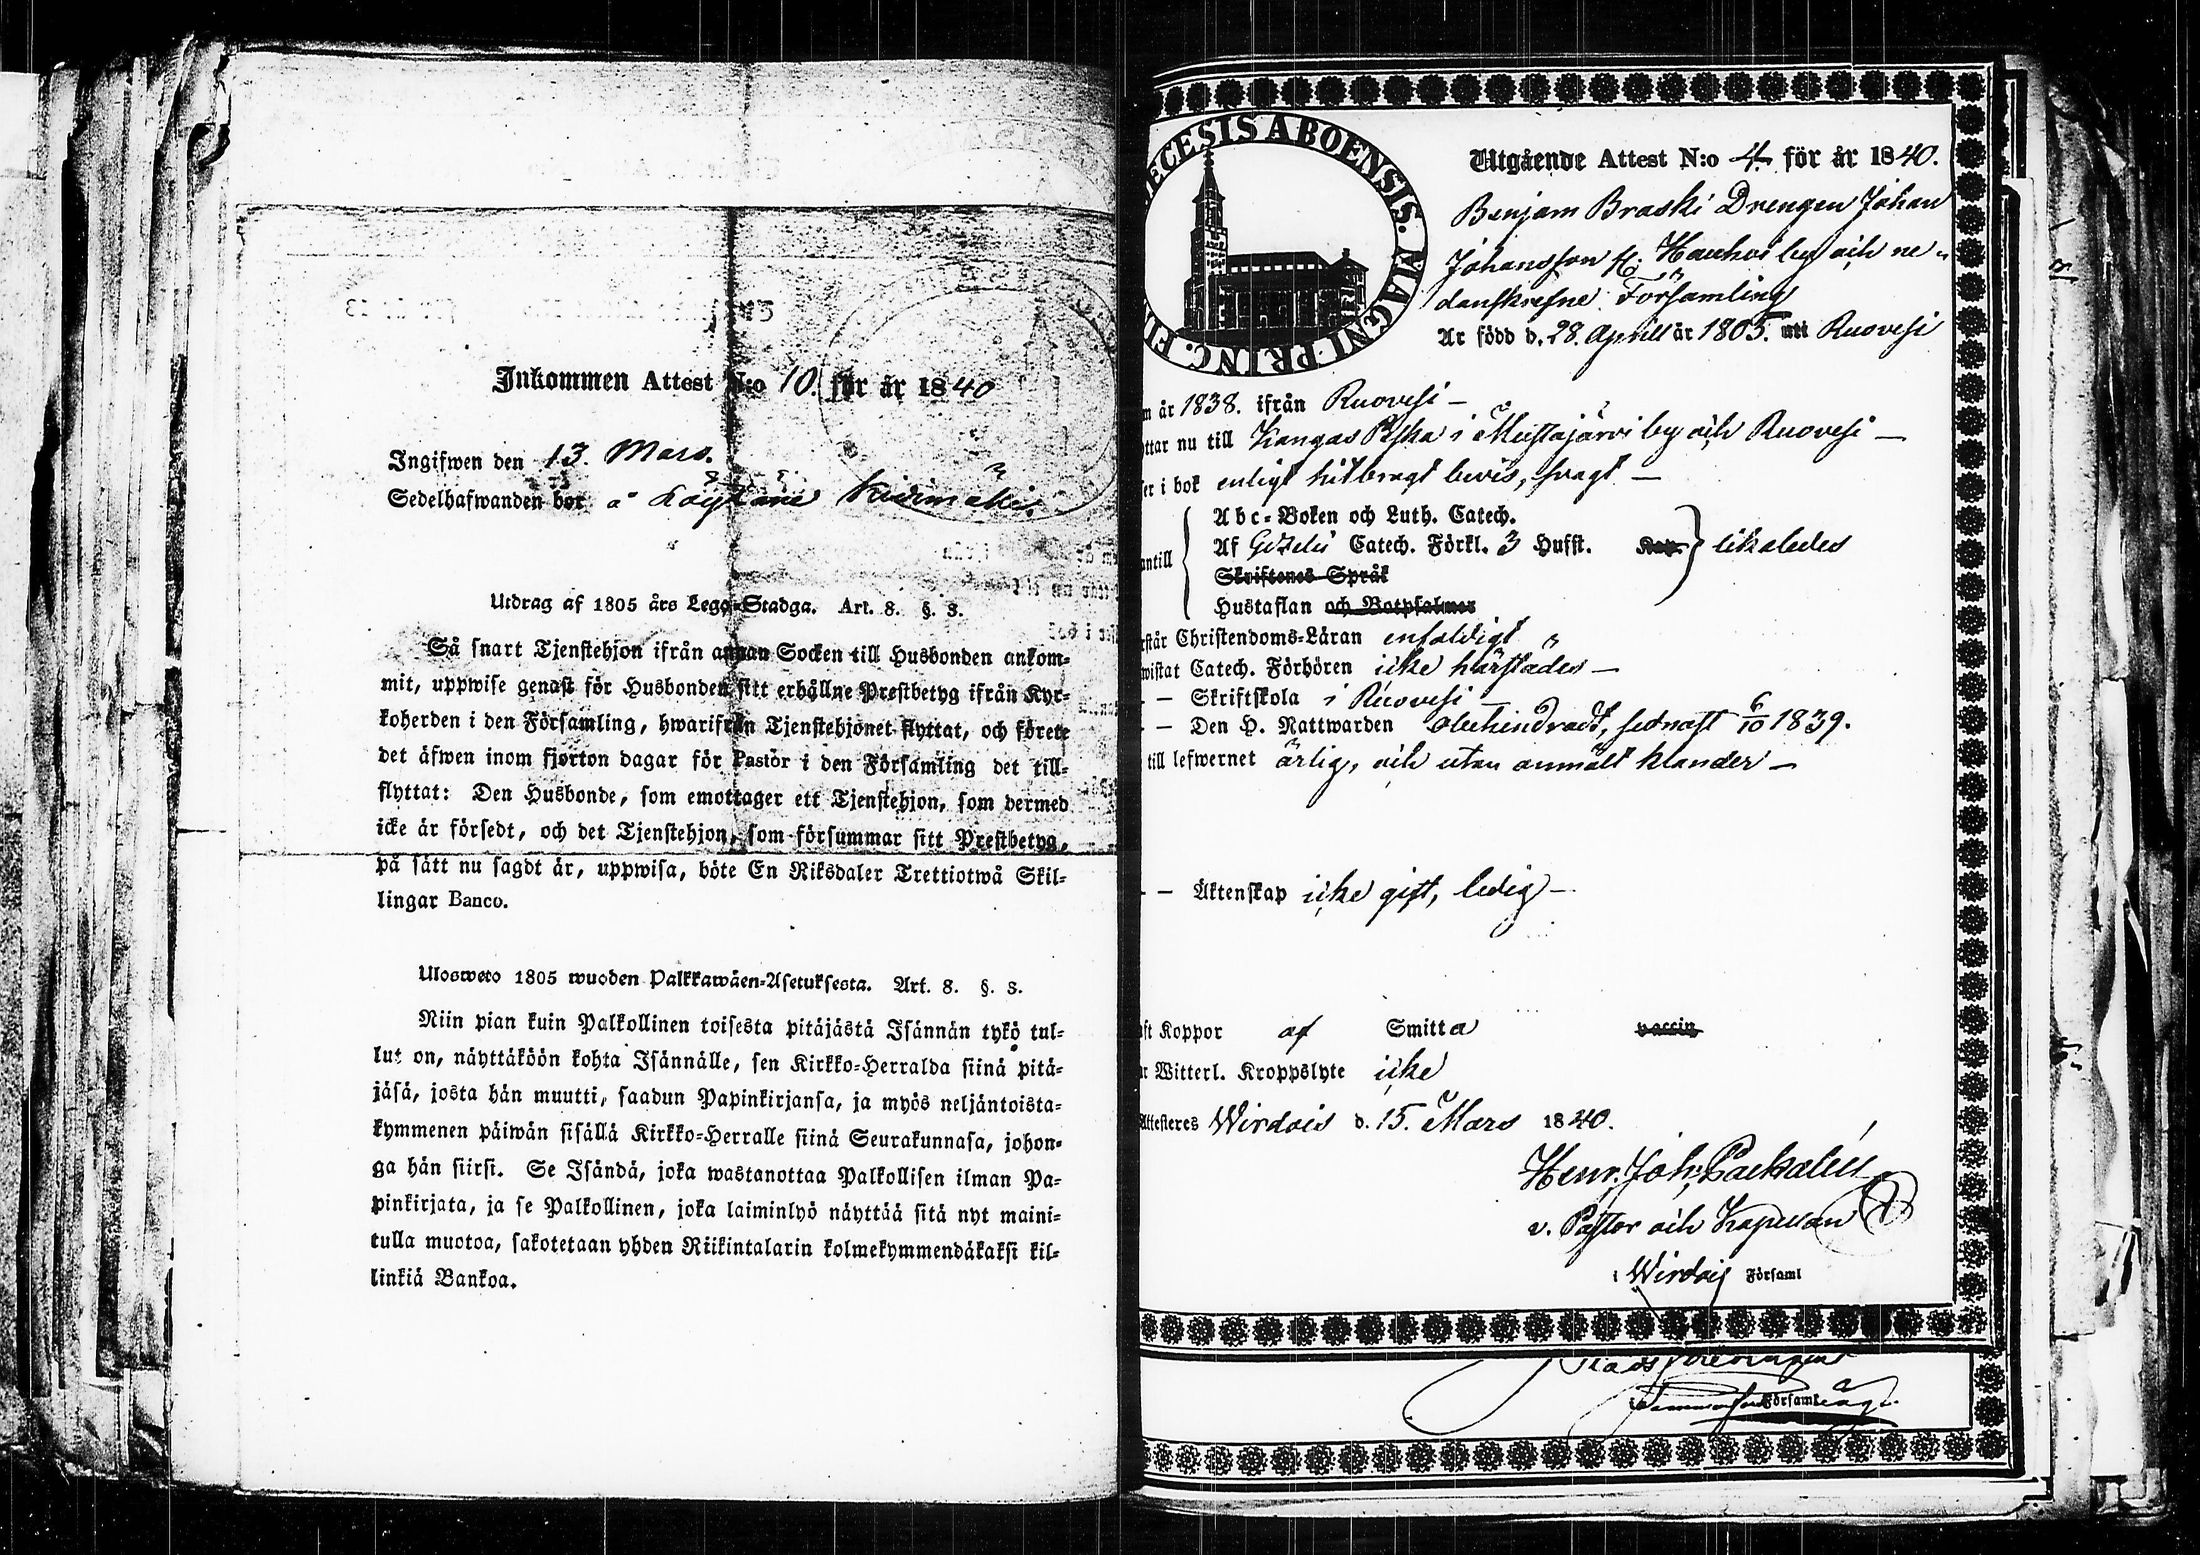 Inkommen Attest N:o 10. för år 1840
Ingifwen den 13. Mars.
Sedelhafwanden bor å
Utdrag af 1805 års Lego-Stadga. Art. 8. §. 3.
Så snart Tjenstehjon ifrån annan Socken till Husbonden ankom-
mit, uppwise genast för Husbonden sitt erhållne Prestbetyg ifrån Kyr-
koherden i den Församling, hwarifrån Tjenstehjonet flyttat, och förete
det äfwen inom fjorton dagar för Pastor i den Församling det till-
flyttat: Den Husbonde, som emottager ett Tjenstehjon, som dermed
icke är försedt, och det Tjenstehjon, som försummar sitt Prestbetyg,
på sätt nu sagdt är, uppwisa, böte En Riksdaler Trettiotwå Skil-
lingar Banco.
Ulosweto 1805 wuoden Palkkawäen-Asetuksesta. Art. 8. §. 3.
Niin pian kuin Palkollinen toisesta pitäjästä Isännän tykö tul-
lut on, näyttäköön kohta Isännälle, sen Kirkko-Herralda siinä pitä-
jäsä, josta hän muutti, saadun Papinkirjansa, ja myös neljäntoista-
kymmenen päiwän sisällä Kirkko-Herralle siinä Seurakunnasa, johon-
ga hän siirsi. Se Isändä, joka wastanottaa Palkollisen ilman Pa-
pinkirjata, ja se Palkollinen, joka laiminlyö näyttää sitä nyt maini-
tulla muotoa, sakotetaan yhden Riikintalarin kolmekymmendäkaksi kil-
linkiä Bankoa.
ECESIS ABOENSIS. MAGNI PRINC. FI
Utgående Attest N:o 4 för år 1840.
Benjam Braski Drengen Johan
Johansson fr. Hauhois by och ne-
danskrefne Församling
Är född d. 28. Aprill år 1805. uti Ruovesi
år 1838. ifrån Ruovesi —
ttar nu till Kangas Peska i Mustajärvi by och Ruovesi —
er i bok enligt hitbragt bevis, svagt —
antill
Abc-Boken och Luth. Catech.
Af Gezelii Catech. Förkl. 3 Hufst. Kap. likaledes
Skriftenes Språk
Hustaflan och Botpsalmer
rstår Christendoms-Läran enfaldigt
wistat Catech. Förhören icke härstädes —
— Skriftskola i Ruovesi —
— Den H. Nattwarden obehindradt, sednast 6/10 1839.
till lefwernet ärlig, och utan anmält klander —
— Äktenskap icke gift, ledig —
ft Koppor af Smitta vaccin
r Witterl. Kroppslyte icke
Attesteres Wirdois d. 15. Mars 1840.
Henr. Joh.
v. Pastor och Kapellan
i Wirdois Församl
Församl